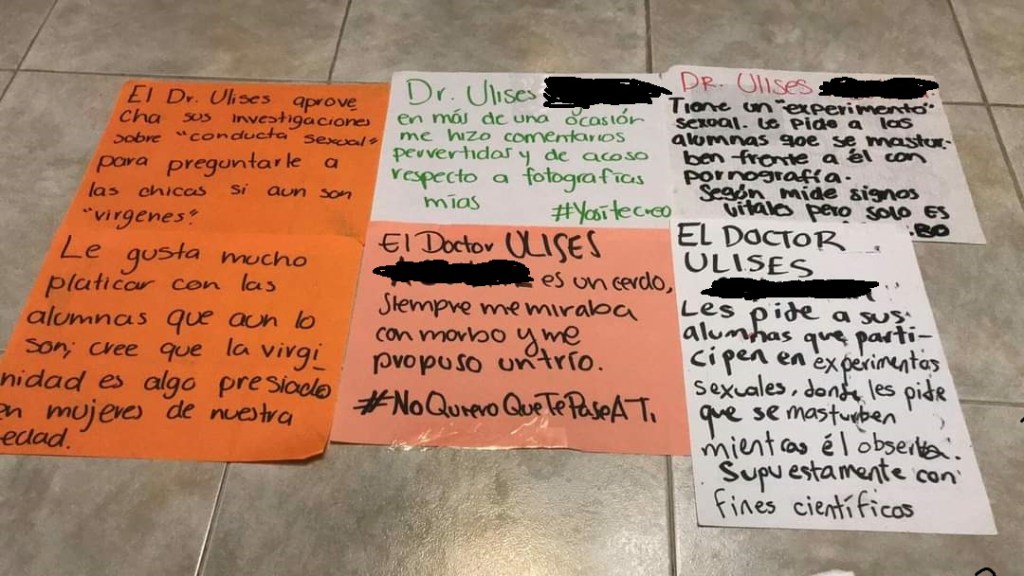 El Dr. Ulises aprove
cha sus investigaciones
sobre "conducta sexual"
para preguntarle a
las chicas si aun son
"virgenes".
Le gusta mucho
platicar con las
alumnas que aun lo
son; cree que la virgi
nidad es algo presiado
en mujeres de nuestra
edad.
Dr. Ulises
en más de una ocasión
me hizo comentarios
pervertidas y de acoso
respecto a fotografías
mías
#Yositecreo
El Doctor ULISES
es un cerdo,
Siempre me miraba
con morbo y me
propuso un trío.
#NoQuieroQueTePaseATi
DR. ULISES
Tiene un "experimento"
sexual. Le pide a las
alumnas que se mastur-
ben frente a él con
pornografía.
Según mide signos
vitales pero solo es
EL DOCTOR
ULISES
Les pide a sus
alumnas que parti-
cipen en experimentos
sexuales, donde les pide
que se masturben
mientras él observa.
Supuestamente con
fines científicos